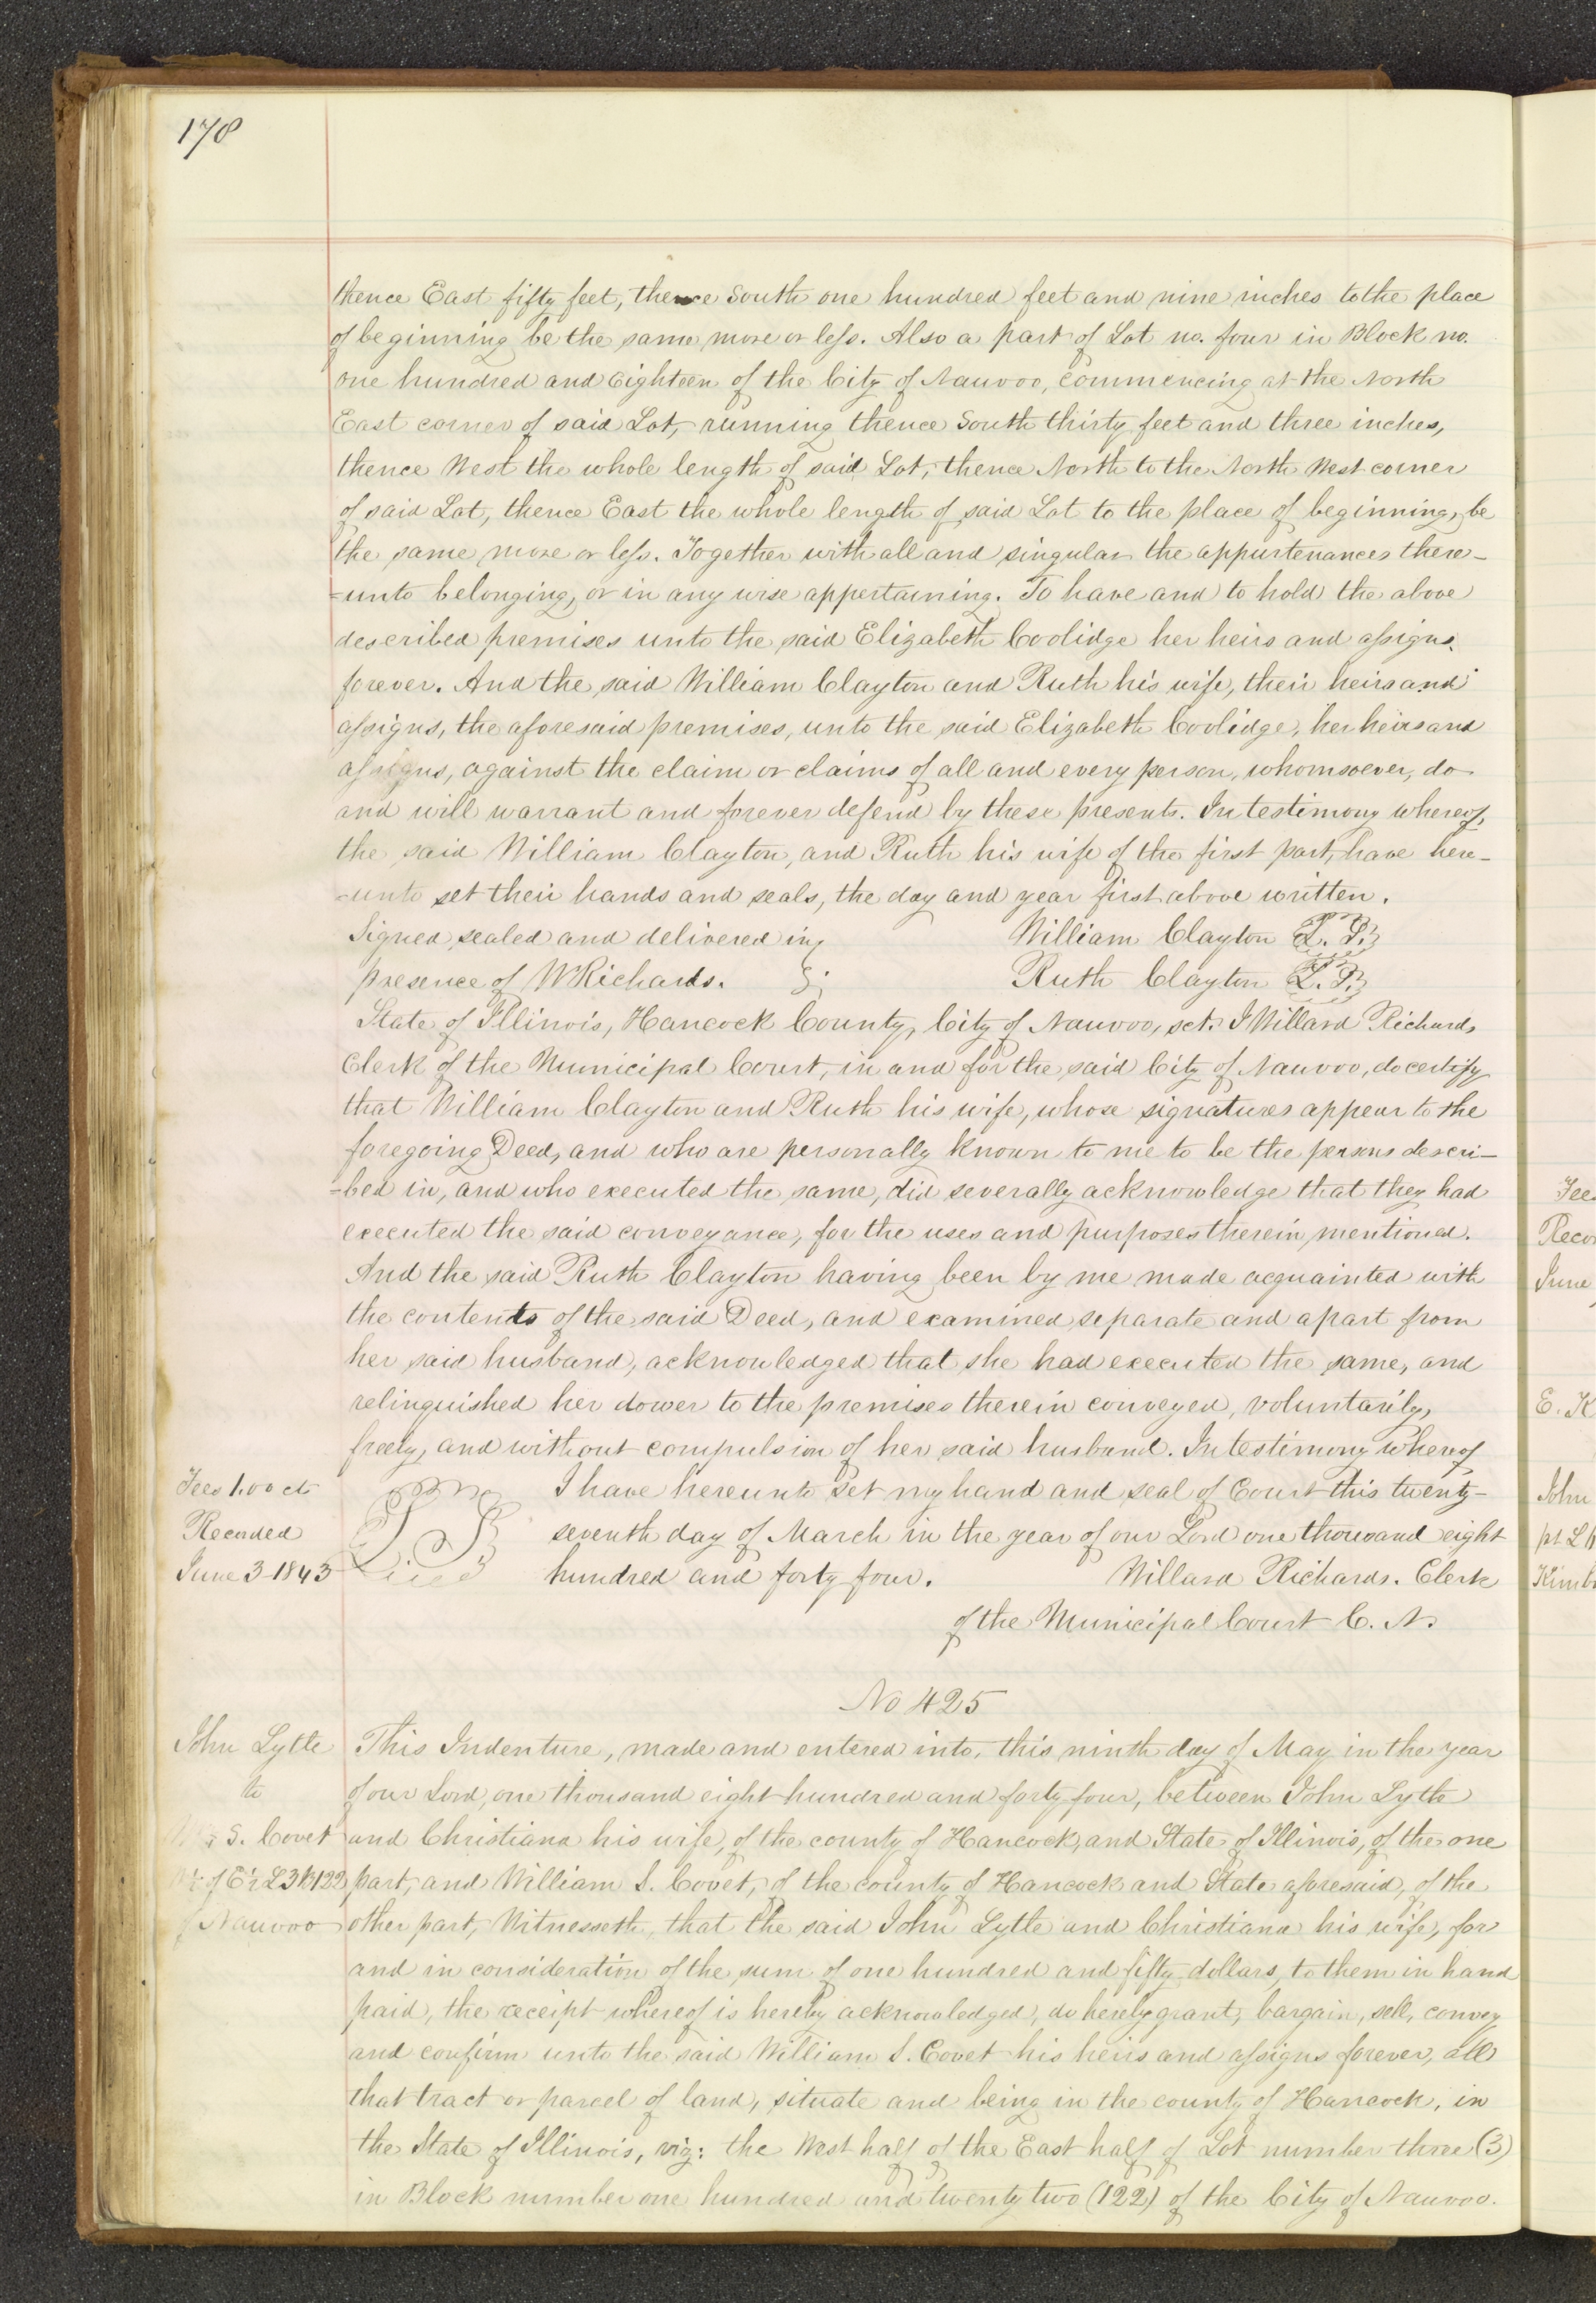 178
thence East fifty feet, thence South one hundred feet and nine inches to the place
of beginning be the same more or less. Also a part of Lot no. four in Block no.
one hundred and Eighteen of the City of Nauvoo, Commencing at the North
East corner of said Lot, running thence South thirty feet and three inches,
thence West the whole length of said Lot, thence North to the North West corner
of said Lot, thence East the whole length of said Lot to the place of beginning, be
the same more or less. Together with all and singular the appurtenances there-
-unto belonging, or in any wise appertaining. To have and to hold the above
described premises unto the said Elizabeth Coolidge her heirs and assigns.
forever. And the said William Clayton and Ruth his wife, their heirs and
assigns, the aforesaid premises, unto the said Elizabeth Coolidge, her heirs and
assigns, against the claim or claims of all and every person, whomsoever, do
and will warrant and forever defend by these presents. In testimony whereof,
the said William Clayton, and Ruth his wife of the first part, have here-
-unto set their hands and seals, the day and year first above written.
Signed sealed and delivered in William Clayton L. S.
presence of W Richards. Ruth Clayton L. S.
State of Illinois, Hancock County, City of Nauvoo, sct. I Willard Richards
Clerk of the Municipal Court, in and for the said City of Nauvoo, do certify
that William Clayton and Ruth his wife, whose signatures appear to the
foregoing Deed, and who are personally known to me to be the persons descri-
-bed in, and who executed the same, did severally acknowledge that they had
executed the said conveyance, for the uses and purposes therein mentioned.
And the said Ruth Clayton having been by me made acquainted with
the contents of the said Deed, and examined separate and apart from
her said husband, acknowledged that she had executed the same, and
relinquished her dower to the premises therein conveyed, voluntarily,
freely, and without compulsion of her said husband. In testimony whereof
Fees 1.00 ct L S I have hereunto set my hand and seal of Court this twenty-
Recorded seventh day of March in the year of our Lord one thousand eight
June 3 1843 hundred and forty four. Willard Richards. Clerk
of the Municipal Court C. N.
No 425
John Lytle This Indenture, made and entered into, this ninth day of May in the year
to of our Lord, one thousand eight hundred and forty four, between John Lytle
S. Covet and Christiana his wife, of the county of Hancock, and State of Illinois, of the one
of E½ L3 B122 part, and William S. Covet, of the county of Hancock and State aforesaid, of the
of Nauvoo other part, Witnesseth, that the said John Lytle and Christiana his wife, for
and in consideration of the sum of one hundred and fifty dollars, to them in hand
paid, the receipt whereof is hereby acknowledged, do hereby grant, bargain, sell, convey
and confirm unto the said William S. Covet his heirs and assigns forever, all
that tract or parcel of land, situate and being in the county of Hancock, in
the State of Illinois, viz: the West half of the East half of Lot number three (3)
in Block number one hundred and twenty two (122) of the City of Nauvoo.
Fees
Reco
June
E. K
John
pt L
Kimb